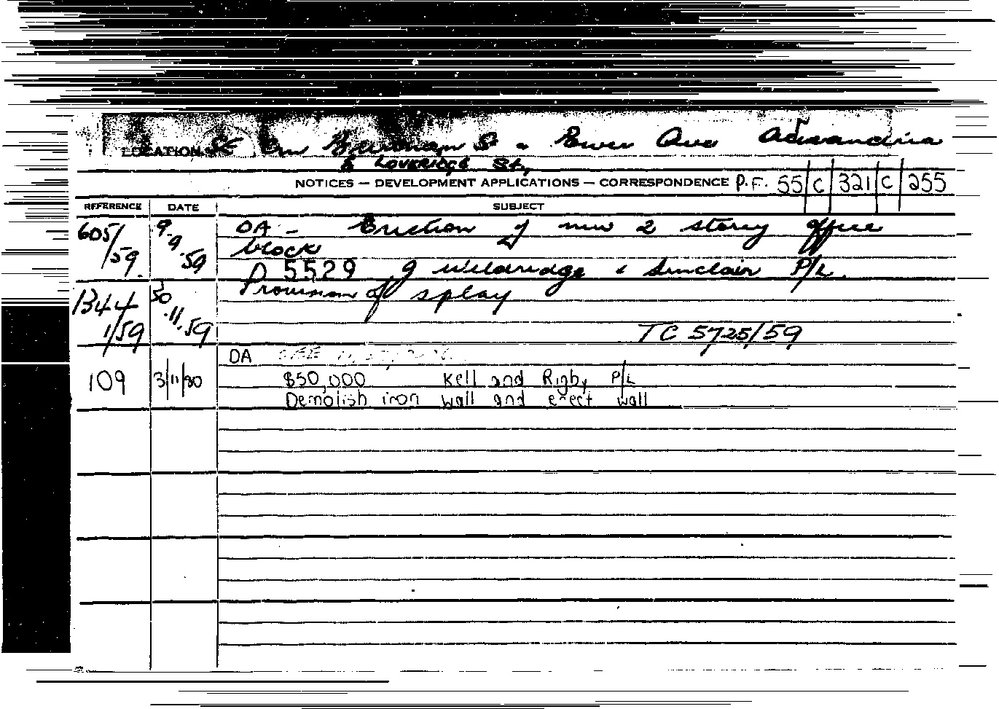 LOCATION SE Cnr St & Power Ave Alexandria
& LOVERIDGE St.,
NOTICES — DEVELOPMENT APPLICATIONS — CORRESPONDENCE P.F. 55 C 321 C 255
REFERENCE DATE SUBJECT
605/59. 9.9.59 DA - Erection of new 2 storey office
block
D 5529 g Wildridge & Sinclair P/L.
1344/59 30.11.59 Provision of splay
TC 5725/59
DA
109 3/11/80 $50,000 Kell and Rigby P/L
Demolish iron wall and erect wall